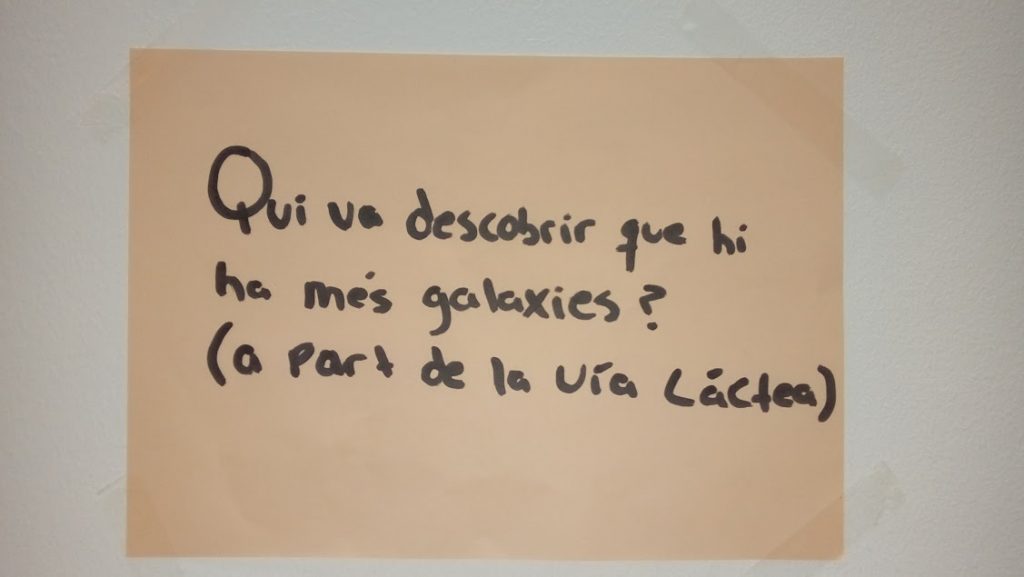 Qui va descobrir que hi
ha més galaxies?
(a part de la Vía Láctea)